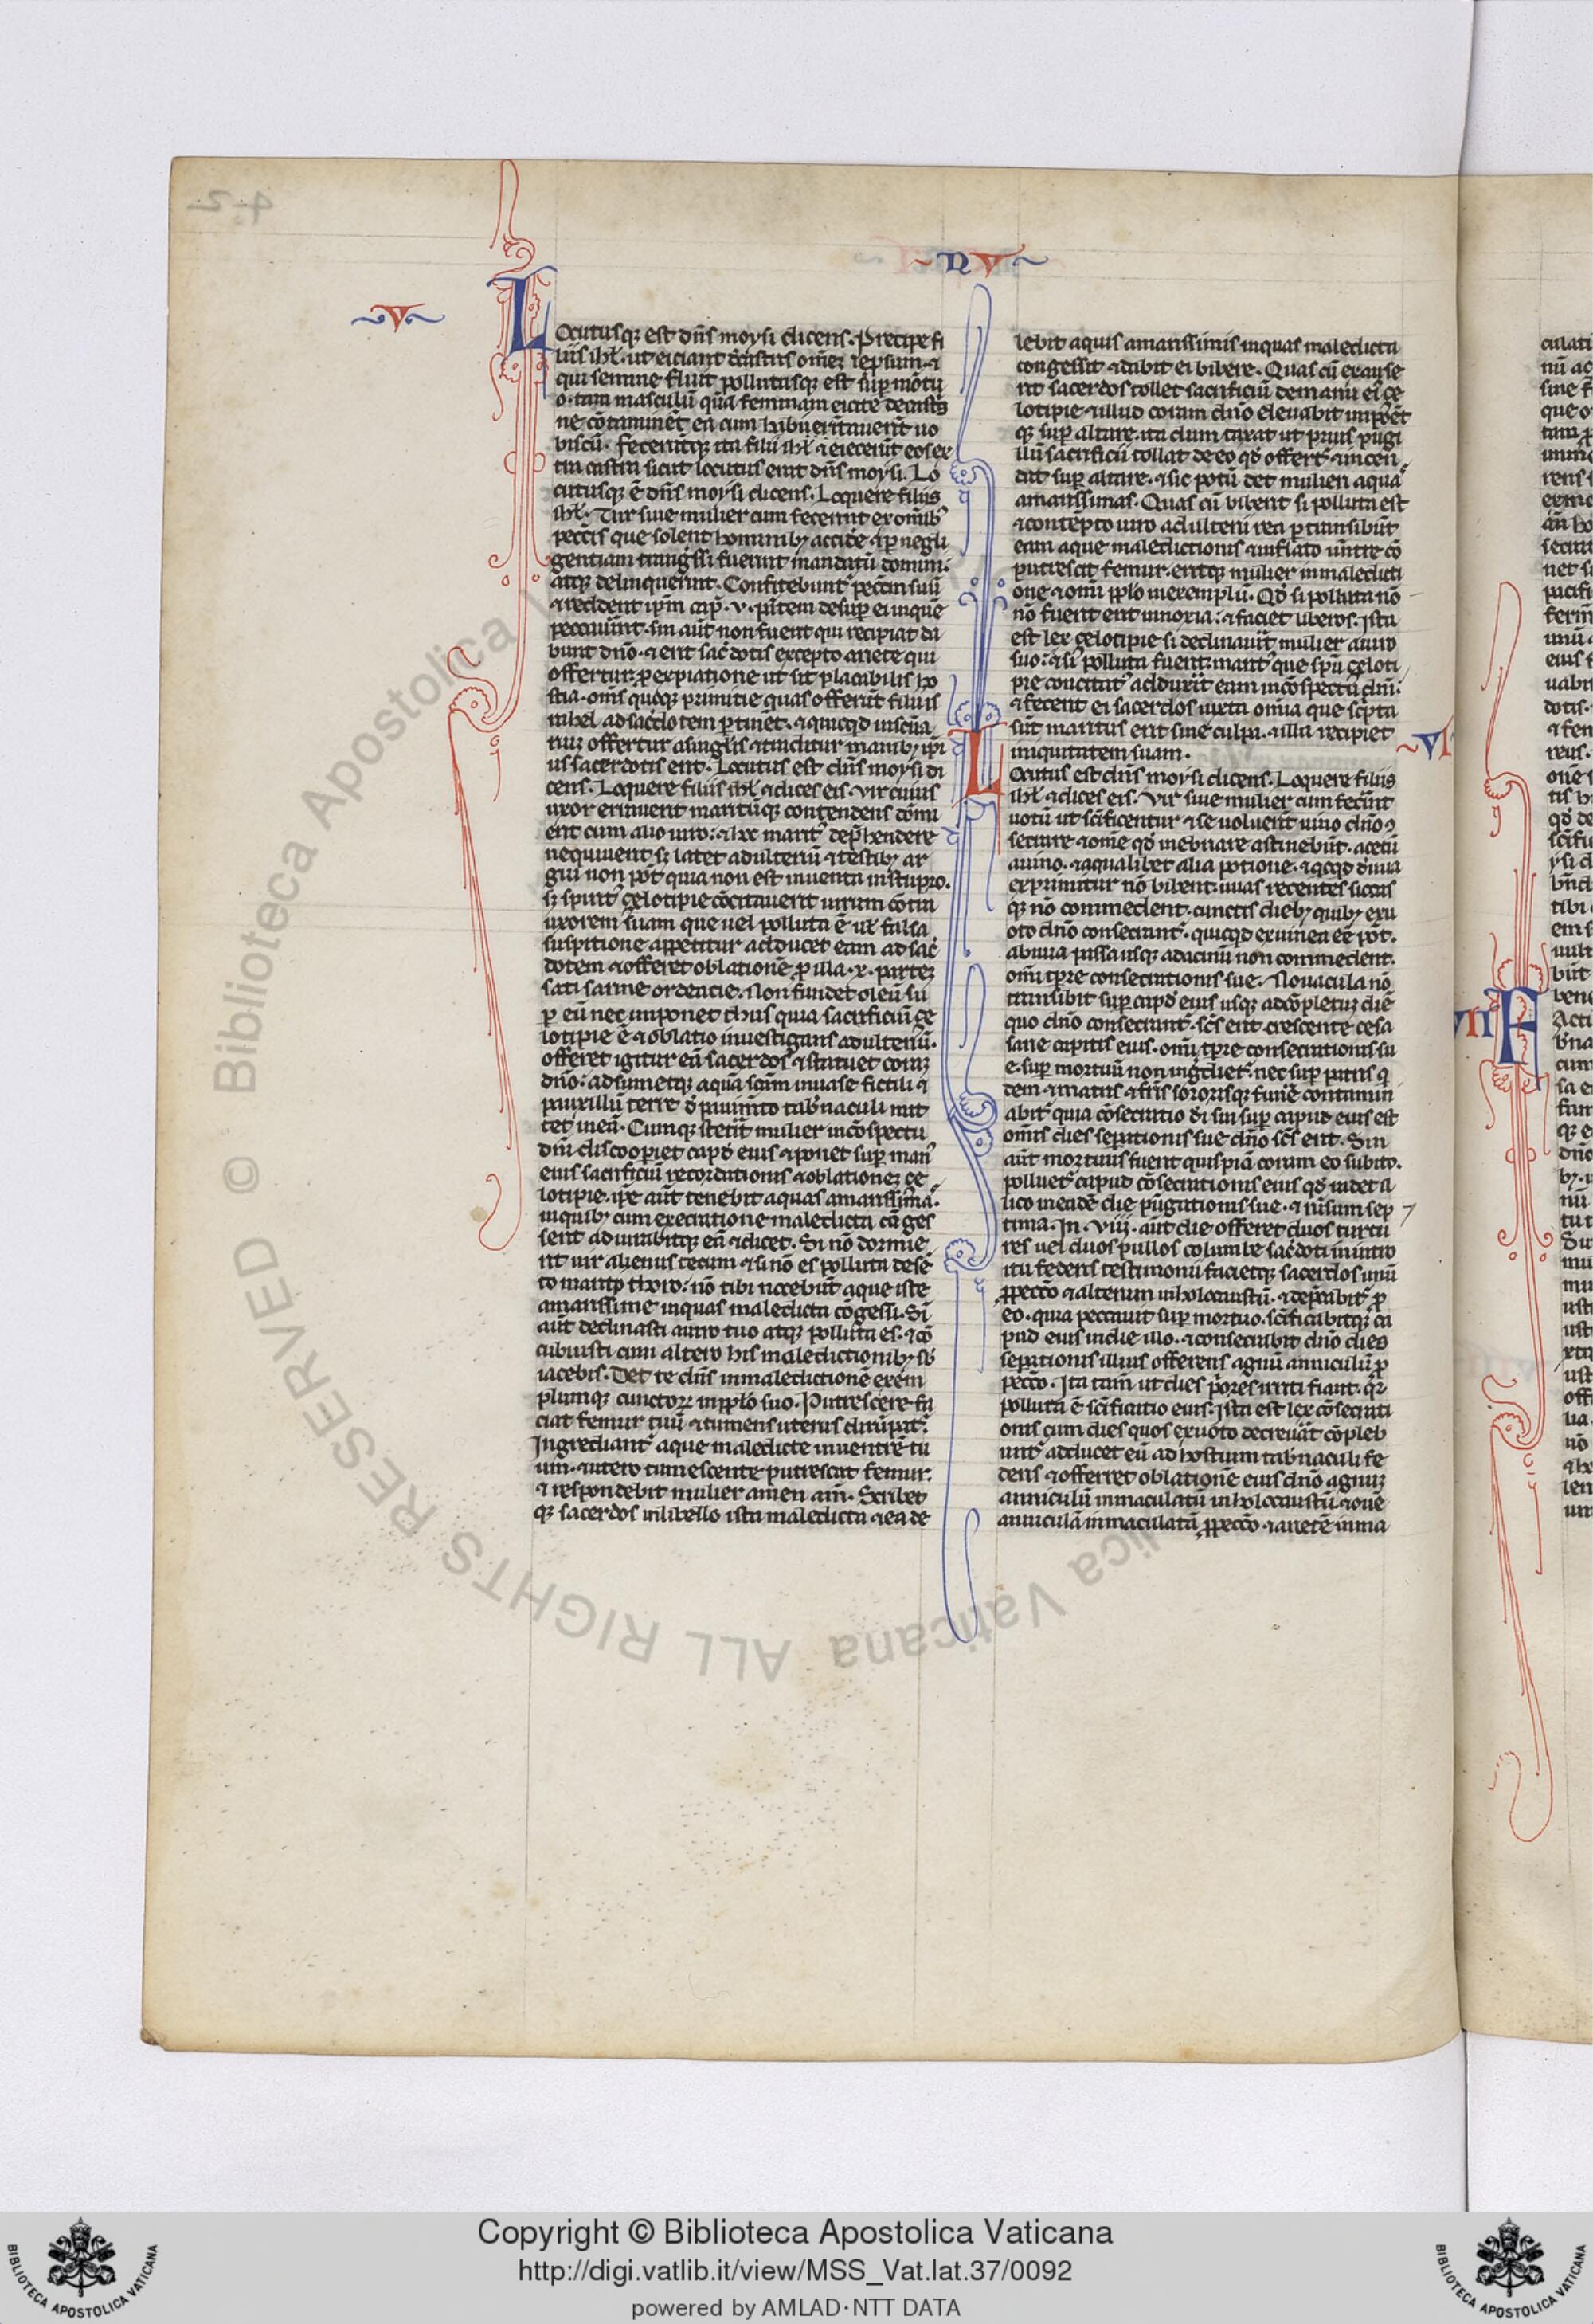 NV
V
LOcutusq; est dn̄s moysi dicens. Precipe fi
liis isr̄l. ut eiciant de castris om̄ez leprosum. ⁊
qui semine fluit pollutusq; est sup̲ mortu
o. tam masculū quā feminam eicite de castris
ne cōtaminēt ea cum habitauerīt uo
biscū. Feceruntq; ita filii isr̄l ⁊ eiecerūt eos ex
tra castra sicut locutus erat dn̄s moysi. Lo
cutusq; ē dn̄s moysi dicens. Loquere filiis
isr̄l. Vir siue mulier cum fecerint ex omib;
peccīs que solent hominib; accidē ⁊ p̲ negli
gentiam transgssi fuerint mandatū domini:
atq; delinquerint. Confitebunt᷑ peccm suū
⁊ reddent ip̄m cap̄. v. ptem desup̲ ei in quē
peccauerint. sin aūt non fuerit qui recipiat da
bunt dn̄o. ⁊ erit sac̄dotis excepto ariete qui
offertur p̲ expiatione ut sit placabilis ho
stia. om̄s quoq; primitie quas offerūt filii is
rahel ad sac̄dotem p̲tinēt. ⁊ quicqd in sc̄ua
riuz offertur a singlis ⁊ traditur manib; ip̄i
us sacerdotis erit. Locutus est dn̄s moysi di
cens. Loquere filiis isr̄l ⁊ dices eis. Vir cuius
uxor errauerit maritūq; contendens dormi
erit cum alio uiro: ⁊ hoc marit᷒ dep̄hendere
nequiuerit s; latet adulteriū ⁊ testib; ar
gui non pōt quia non est inuenta in stupro.
si spirit᷒ çelotipie cōcitauerit uirum cōtra
uxorem suam que uel polluta ē uł falsa
suspitione appetitur adducet eam ad sac̄
dotem ⁊ offeret oblationē p̲ illa. x. partez
sati farine ordeacie. Non fundet oleū su
p̲ eū nec imponet thus quia sacrificiū çe
lotipie ē ⁊ oblatio inuestigans adulteriū.
offeret igitur eā sacerdos ⁊ statuet coraz
dn̄o: adsumetq; aquā scām in uase fictili ⁊
pauxillū terre d̄ pauimto tab̄naculi mit
tet in eā. Cumq; steterit mulier in cōspectu
dn̄i discooperiet capd̄ eius ⁊ ponet sup̲ man᷒
eius sacrificiū recordationis ⁊ oblationez çe
lotipie. ip̄e aūt tenebit aquas amarissimas.
in quib; cum execratione maledicta cōges
sent adiurabitq; eā ⁊ dicet. Si nō dormie
rit uir alienus tecum ⁊ si nō es polluta desē
to mariti thoro: nō tibi nocebūt aque iste
amarissime in quas maledicta cōgessi. Si
aūt declinasti a uiro tuo atq; polluta es. ⁊ cō
cubuisti cum altero his maledictionib; sb̄
iacebis. Det te dn̄s in maledictionē exem
plumq; cunctorꝝ in pp̄lo suo. Putrescere fa
ciat femur tuū ⁊ tumens uterus dirūpat᷑.
Ingrediant᷑ aque maledicte in uentrē tu
um. ⁊ utero tumescente putrescat femur.
⁊ respondebit mulier amen am̄. Scribet
q; sacerdos in libello ista maledicta ⁊ ea de
lebit aquis amarissimis in quas maledicta
congessit ⁊ dabit ei bibere. Quas cū exause
rit sacerdos tollet sacrificiū de manu ei᷒ çe
lotipie ⁊ illud coram dn̄o eleuabit inponet
q; sup̲ altare. ita dum taxat ut prius pugi
llū sacrificii tollat de eo qd̄ offert᷑ ⁊ incen
dat sup̲ altare. ⁊ sic potū det mulieri aquā
amarissimas. Quas cū biberit si polluta est
⁊ contēpto uiro adulterii rea p̲transibūt
eam aque maledictionis ⁊ inflato uentre cō
putrescat femur. eritq; mulier in maledicti
one ⁊ omi pp̄lo in exemplū. Qd̄ si polluta nō
nō fuerit erit innoxia: ⁊ faciet liberos. Ista
est lex çelotipie si declinauit mulier a uiro
suo: ⁊ si polluta fuerit. marit᷒ que spū çeloti
pie concitat᷒ adduxerit eam in cōspectu dn̄i:
⁊ fecerit ei sacerdos iuxta omia que scpta
sūt maritus erit sine culpa. ⁊ illa recipiet
iniquitatem suam.
VI
LOcutus est dn̄s moysi dicens. Loquere filiis
isr̄l ⁊ dices eis. Vir siue mulier cum fecerint
uotū ut scificentur ⁊ se uoluerīt uino dn̄o
secrare ⁊ ome qd̄ inebriare astinebūt. acetū
a uino. ⁊ a qualibet alia potione. ⁊ qcqd d̄ uua
exprimitur nō bibent. uuas recentes siccas
q; nō commedent. cunctis dieb; quib; exu
oto dn̄o consecrant᷑. quicqd ex uinea eē pōt.
ab uua passa usq; ad acinū non commedent.
omi tp̄re consecrationis sue. Nouacula nō
transibit sup̲ capd̄ eius usq; ad cōpletuz diē
quo dn̄o consecrant᷑. scs̄ erit crescente cesa
rie capitis eius. omi tp̄re consecrationis su
e. sup̲ mortuū non ingdiet᷑. nec sup̲ patris q
dem ⁊ matris ⁊ fr̄is sororisq; funē contamin
abit᷑ quia cōsecratio d̄i sui sup̲ capud eius est
omis dies sepationis sue dn̄o scs̄ erit. Sin
aūt mortuus fuerit quispiā coram eo subito.
polluet᷑ capud cōsecrationis eius qd̄ radet il
lico in eadē die purgationis sue. ⁊ rursum sep
tima. In. viij. aūt die offeret duos turtu
res uel duos pullos columbe sac̄doti in intro
itu federis testimonii facietq; sacerdos unū
p̲ peccō ⁊ alterum in holocaustū. ⁊ dep̄cabit᷑ p̲
eo. quia peccauit sup̲ mortuo. scificabitq; ca
pud eius in die illo. ⁊ consecrabit dn̄o dies
sepationis illius offerens agnū anniculū p̲
peccō. Ita tam̄ ut dies priores irriti fiant. qr̄
polluta ē scificatio eius. Ista est lex cōsecrati
onis cum dies quos ex uoto decreuerat cōpleb
unt᷑ adducet eū ad hostium tab̄naculi fe
deris ⁊ offerret oblationē eius dn̄o agnuz
anniculū immaculatū in holocaustū. ⁊ oue
anniculā immaculatā p̲ peccō. ⁊ arietē inma
VII
© Biblioteca Apostolica Vaticana ALL RIGHTS RESERVED
Copyright © Biblioteca Apostolica Vaticana
http://digi.vatlib.it/view/MSS_Vat.lat.37/0092
powered by AMLAD·NTT DATA
BIBLIOTECA APOSTOLICA VATICANA
BIBLIOTECA APOSTOLICA VATICANA